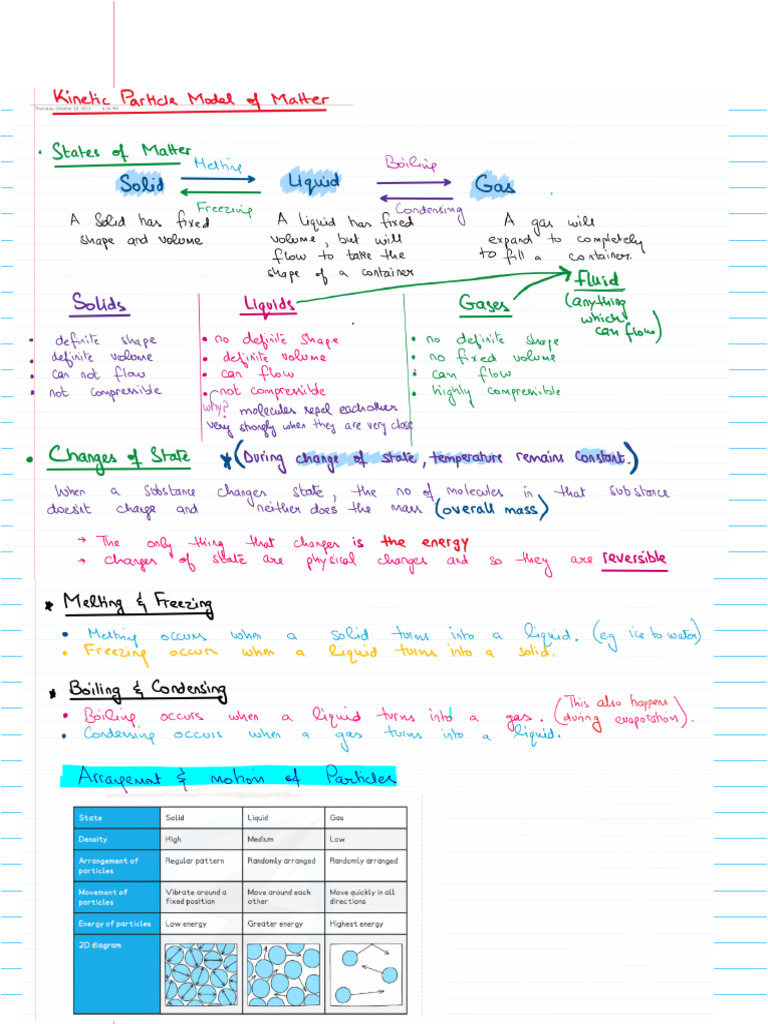 Kinetic Particle Model of Matter
Thursday, October 19, 2023 6:34 PM
• States of Matter
Melting Boiling
Solid Liquid Gas
Freezing Condensing
A Solid has fixed
shape and volume
A liquid has fixed
volume, but will
flow to take the
shape of a container
A gas will
expand to completely
to fill a container.
fluid
(anything
which
can flow)
Solids
• definite shape
• definite volume
• can not flow
• not compressible
Liquids
• no definite shape
• definite volume
• can flow
• not compressible
why? molecules repel eachother
very strongly when they are very close
Gases
• no definite shape
• no fixed volume
• can flow
• highly compressible
• Changes of State * (During change of state, temperature remains constant.)
When a substance changes state, the no of molecules in that substance
doesn't change and neither does the mass (overall mass)
→ The only thing that changes is the energy
→ changes of state are physical changes and so they are reversible
* Melting & Freezing
• Melting occurs when a solid turns into a liquid. (eg ice to water)
• Freezing occurs when a liquid turns into a solid.
* Boiling & Condensing
• Boiling occurs when a liquid turns into a gas. (This also happens
during evaporation).
• Condensing occurs when a gas turns into a liquid.
Arrangement & motion of Particles
State Solid Liquid Gas
Density High Medium Low
Arrangement of Regular pattern Randomly arranged Randomly arranged
particles
Movement of Vibrate around a Move around each Move quickly in all
particles fixed position other directions
Energy of particles Low energy Greater energy Highest energy
2D diagram